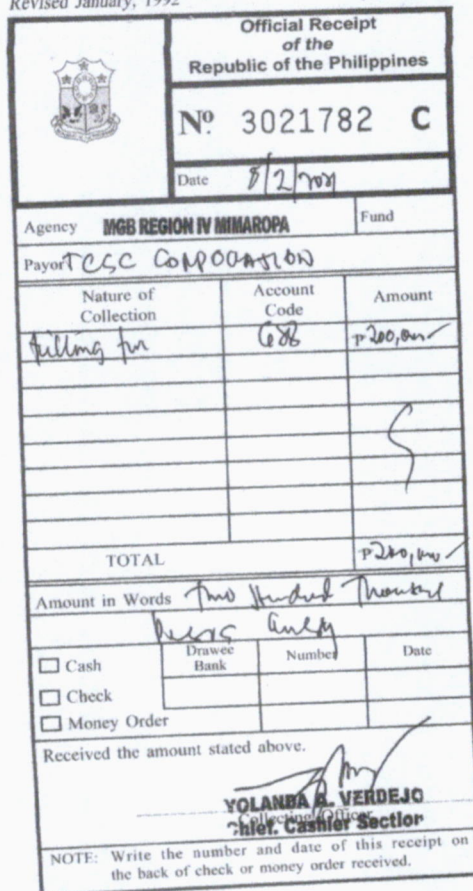 Revised January, 1992
Official Receipt
of the
Republic of the Philippines
Nº 3021782 C
Date 8/2/2021
Agency MGB REGION IV MIMAROPA Fund
Payor TCSC CORPORATION
Nature of Collection Account Code Amount
628 ₱200,000
TOTAL ₱200,000
Amount in Words Two Hundred Thousand
Pesos Only
Cash Drawee Bank Number Date
Check
Money Order
Received the amount stated above.
YOLANDA A. VERDEJO
Collecting Officer
Chief. Cashier Section
NOTE: Write the number and date of this receipt on
the back of check or money order received.